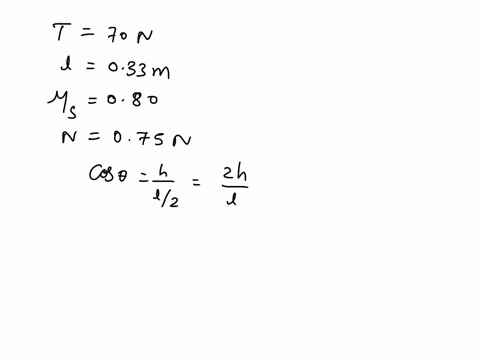 T = 70 N
l = 0.33 m
μs = 0.80
N = 0.75 N
Cos θ = h / l/2 = 2h / l